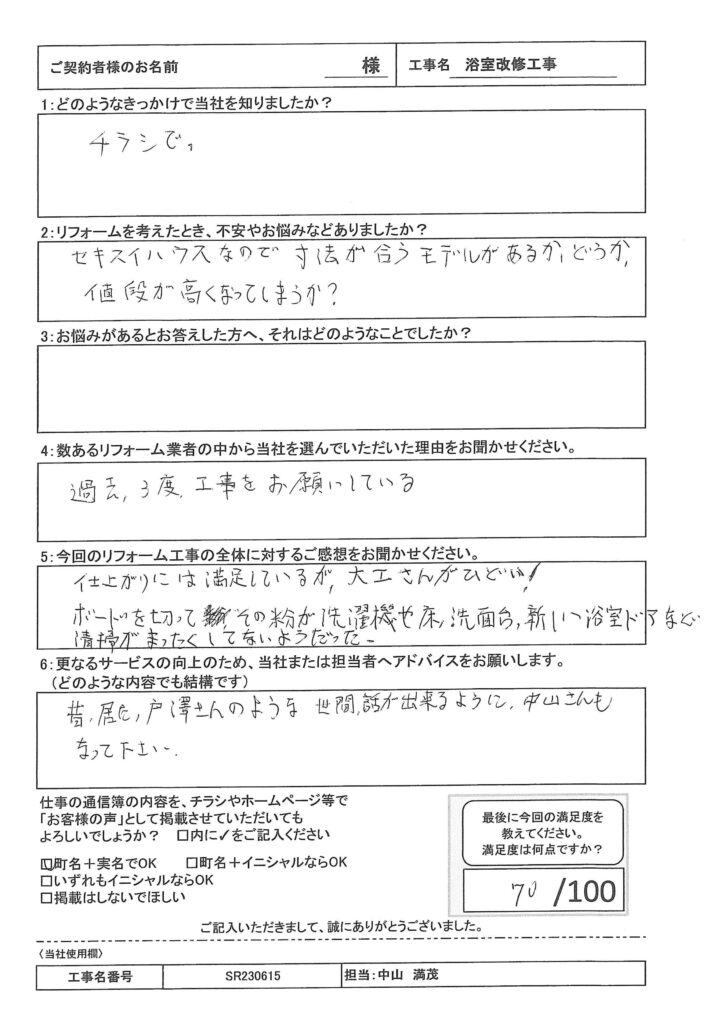 ご契約者様のお名前 様 工事名 浴室改修工事
1:どのようなきっかけで当社を知りましたか?
チラシで。
2:リフォームを考えたとき、不安やお悩みなどありましたか?
セキスイハウスなので 寸法が合うモデルがあるか、どうか、
値段が高くなってしまうか?
3:お悩みがあるとお答えした方へ、それはどのようなことでしたか?
4:数あるリフォーム業者の中から当社を選んでいただいた理由をお聞かせください。
過去,3度,工事をお願いしている
5:今回のリフォーム工事の全体に対するご感想をお聞かせください。
仕上がりには満足しているが,大工さんがひどい!
ボードを切って その粉が洗濯機や床,洗面台,新しい浴室ドアなど
清掃がまったくしてないようだった。
6:更なるサービスの向上のため、当社または担当者へアドバイスをお願いします。
(どのような内容でも結構です)
昔,居た,戸澤さんのような 世間話が出来るように,中山さんも
なって下さい。
仕事の通信簿の内容を、チラシやホームページ等で
「お客様の声」として掲載させていただいても
よろしいでしょうか? □内に✓をご記入ください
☑町名+実名でOK □町名+イニシャルならOK
□いずれもイニシャルならOK
□掲載はしないでほしい
最後に今回の満足度を
教えてください。
満足度は何点ですか?
70 /100
ご記入いただきまして、誠にありがとうございました。
〈当社使用欄〉
工事名番号 SR230615 担当:中山 満茂